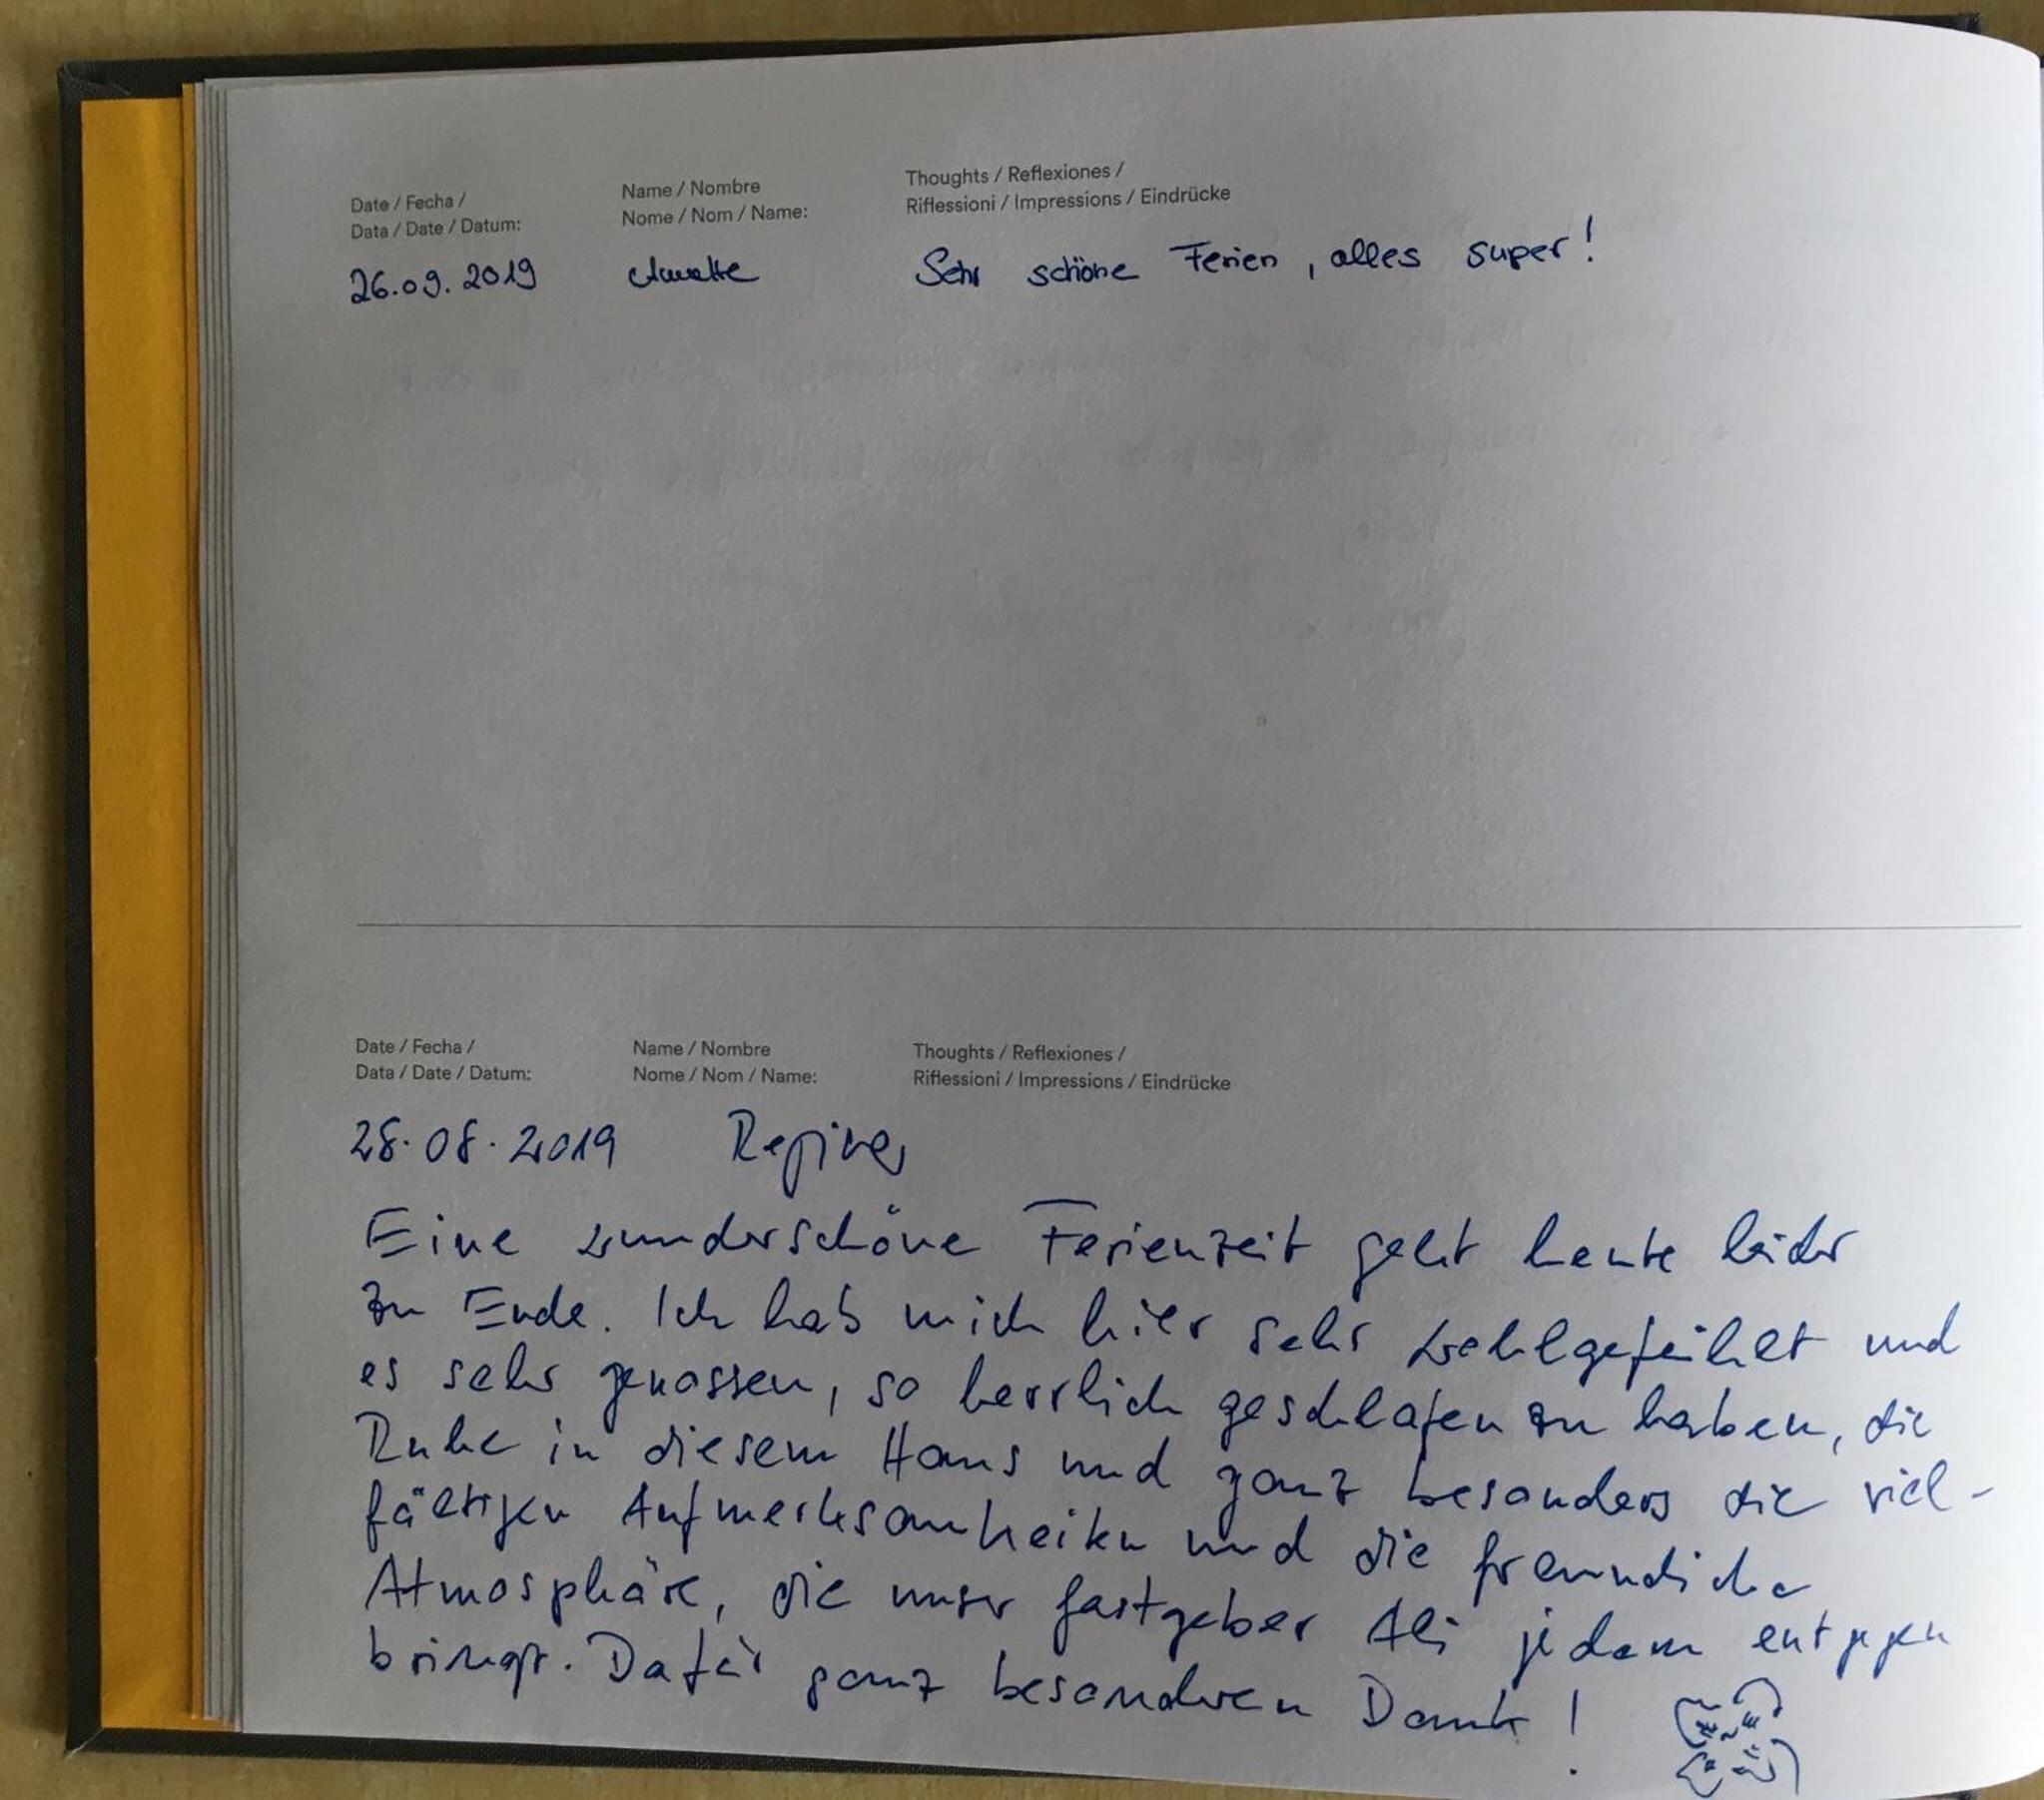 Date / Fecha /
Data / Date / Datum:
Name / Nombre
Nome / Nom / Name:
Thoughts / Reflexiones /
Riflessioni / Impressions / Eindrücke
26.09.2019 Annette Sehr schöne Ferien, alles super!
Date / Fecha /
Data / Date / Datum:
Name / Nombre
Nome / Nom / Name:
Thoughts / Reflexiones /
Riflessioni / Impressions / Eindrücke
28.08.2019 Regina
Eine wunderschöne Ferienzeit geht heute leider
zu Ende. Ich hab mich hier sehr wohlgefühlt und
es sehr genossen, so herrlich geschlafen zu haben, die
Ruhe in diesem Haus und ganz besonders die viel-
fältigen Aufmerksamkeiten und die freundliche
Atmosphäre, die unser Gastgeber Ali jedem entgegen
bringt. Dafür ganz besonderen Dank!